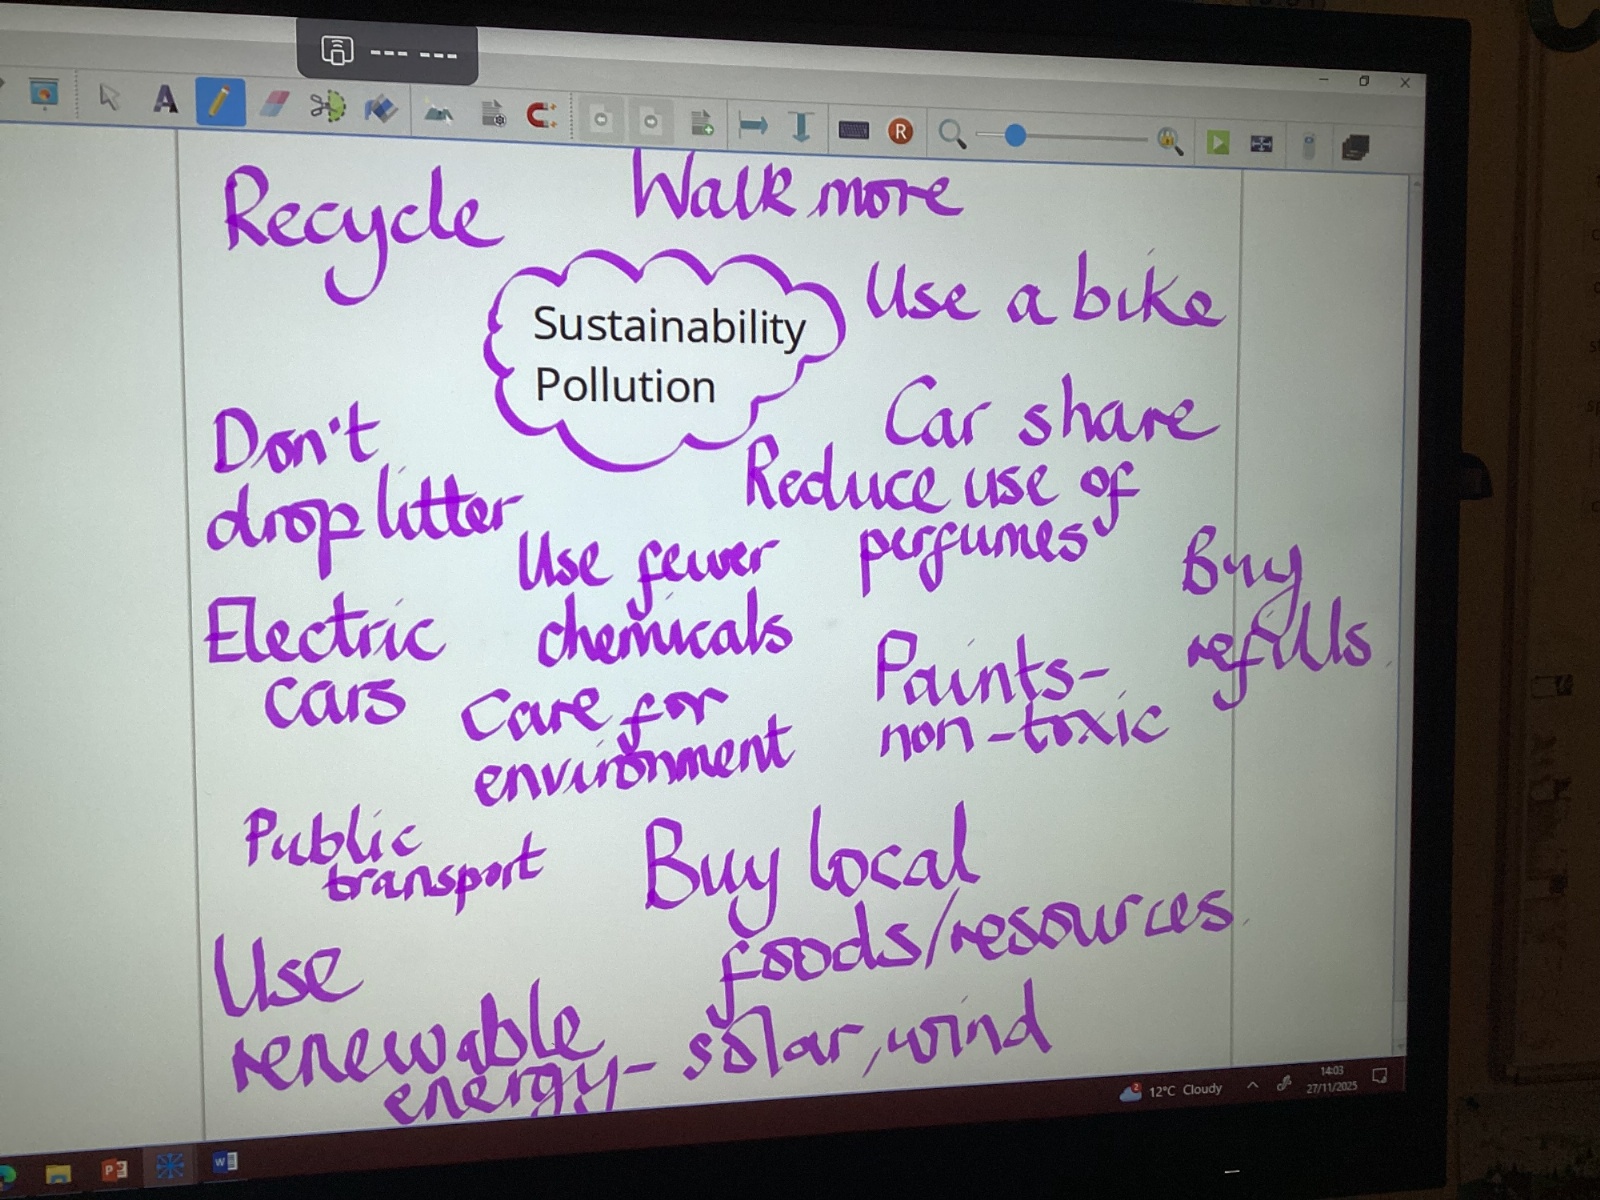 Recycle
Walk more
Sustainability
Pollution
Use a bike
Car share
Don't
drop litter
Reduce use of
perfumes
Use fewer
chemicals
Buy
refills
Electric
cars
Care for
environment
Paints-
non-toxic
Public
transport
Buy local
foods/resources
Use
renewable
energy- solar, wind
12°C Cloudy
14:03
27/11/2025